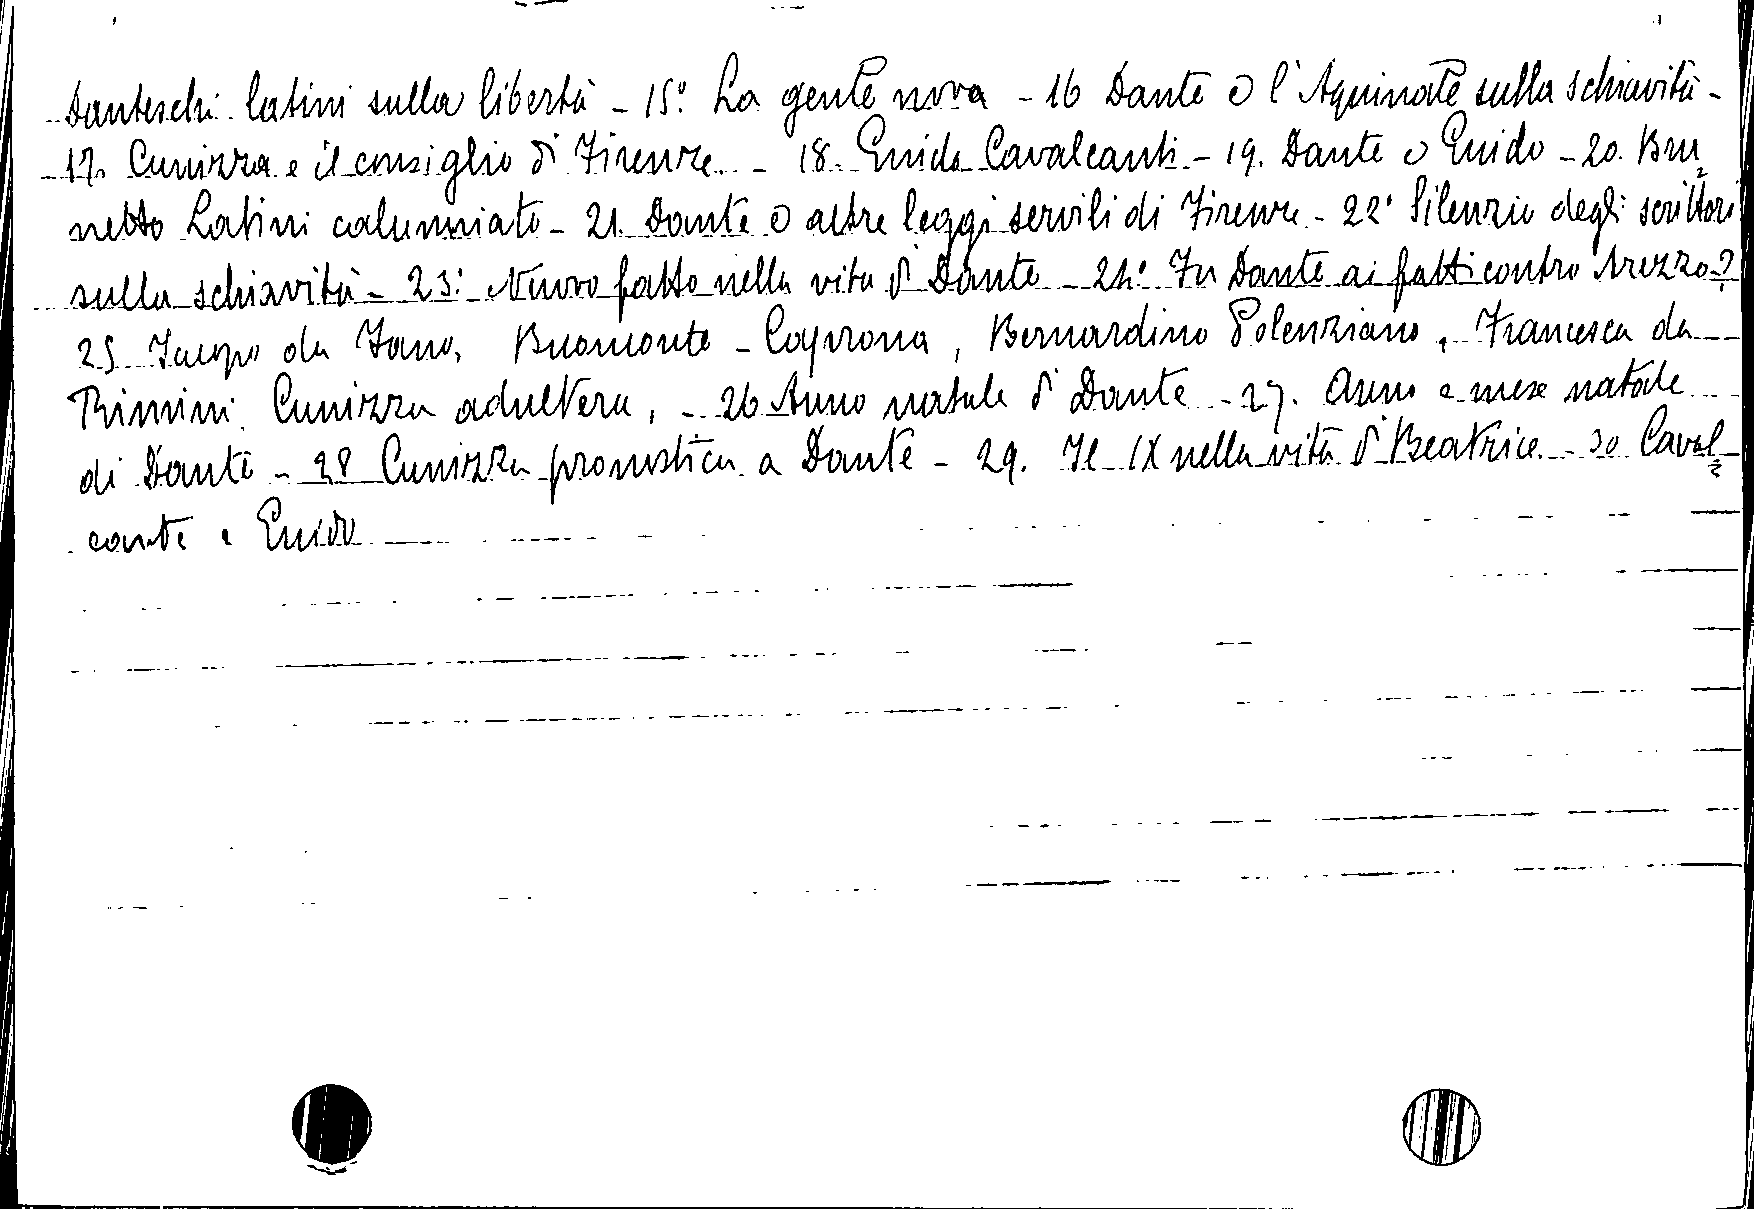 Danteschi latini sulla libertà - 15º La gente nova - 16 Dante e l'Aquinate sulla schiavitù -
17. Cunizza e il consiglio di Firenze - 18. Guido Cavalcanti - 19. Dante e Guido - 20. Bru
netto Latini calunniato - 21. Dante e altre leggi servili di Firenze - 22º Silenzio degli scrittori
sulla schiavitù - 23º Nuovo fatto nella vita di Dante - 24º Fu Dante ai fatti contro Arezzo?
25 Jacopo da Fano, Buonconte - Caprona, Bernardino Polenziano, Francesca da
Rimini, Cunizza adultera, - 26 Anno natale di Dante - 27. Anno e mese natale
di Dante - 28 Cunizza pronostica a Dante - 29. Il IX nella vita di Beatrice - 30 Caval=
cante e Guido